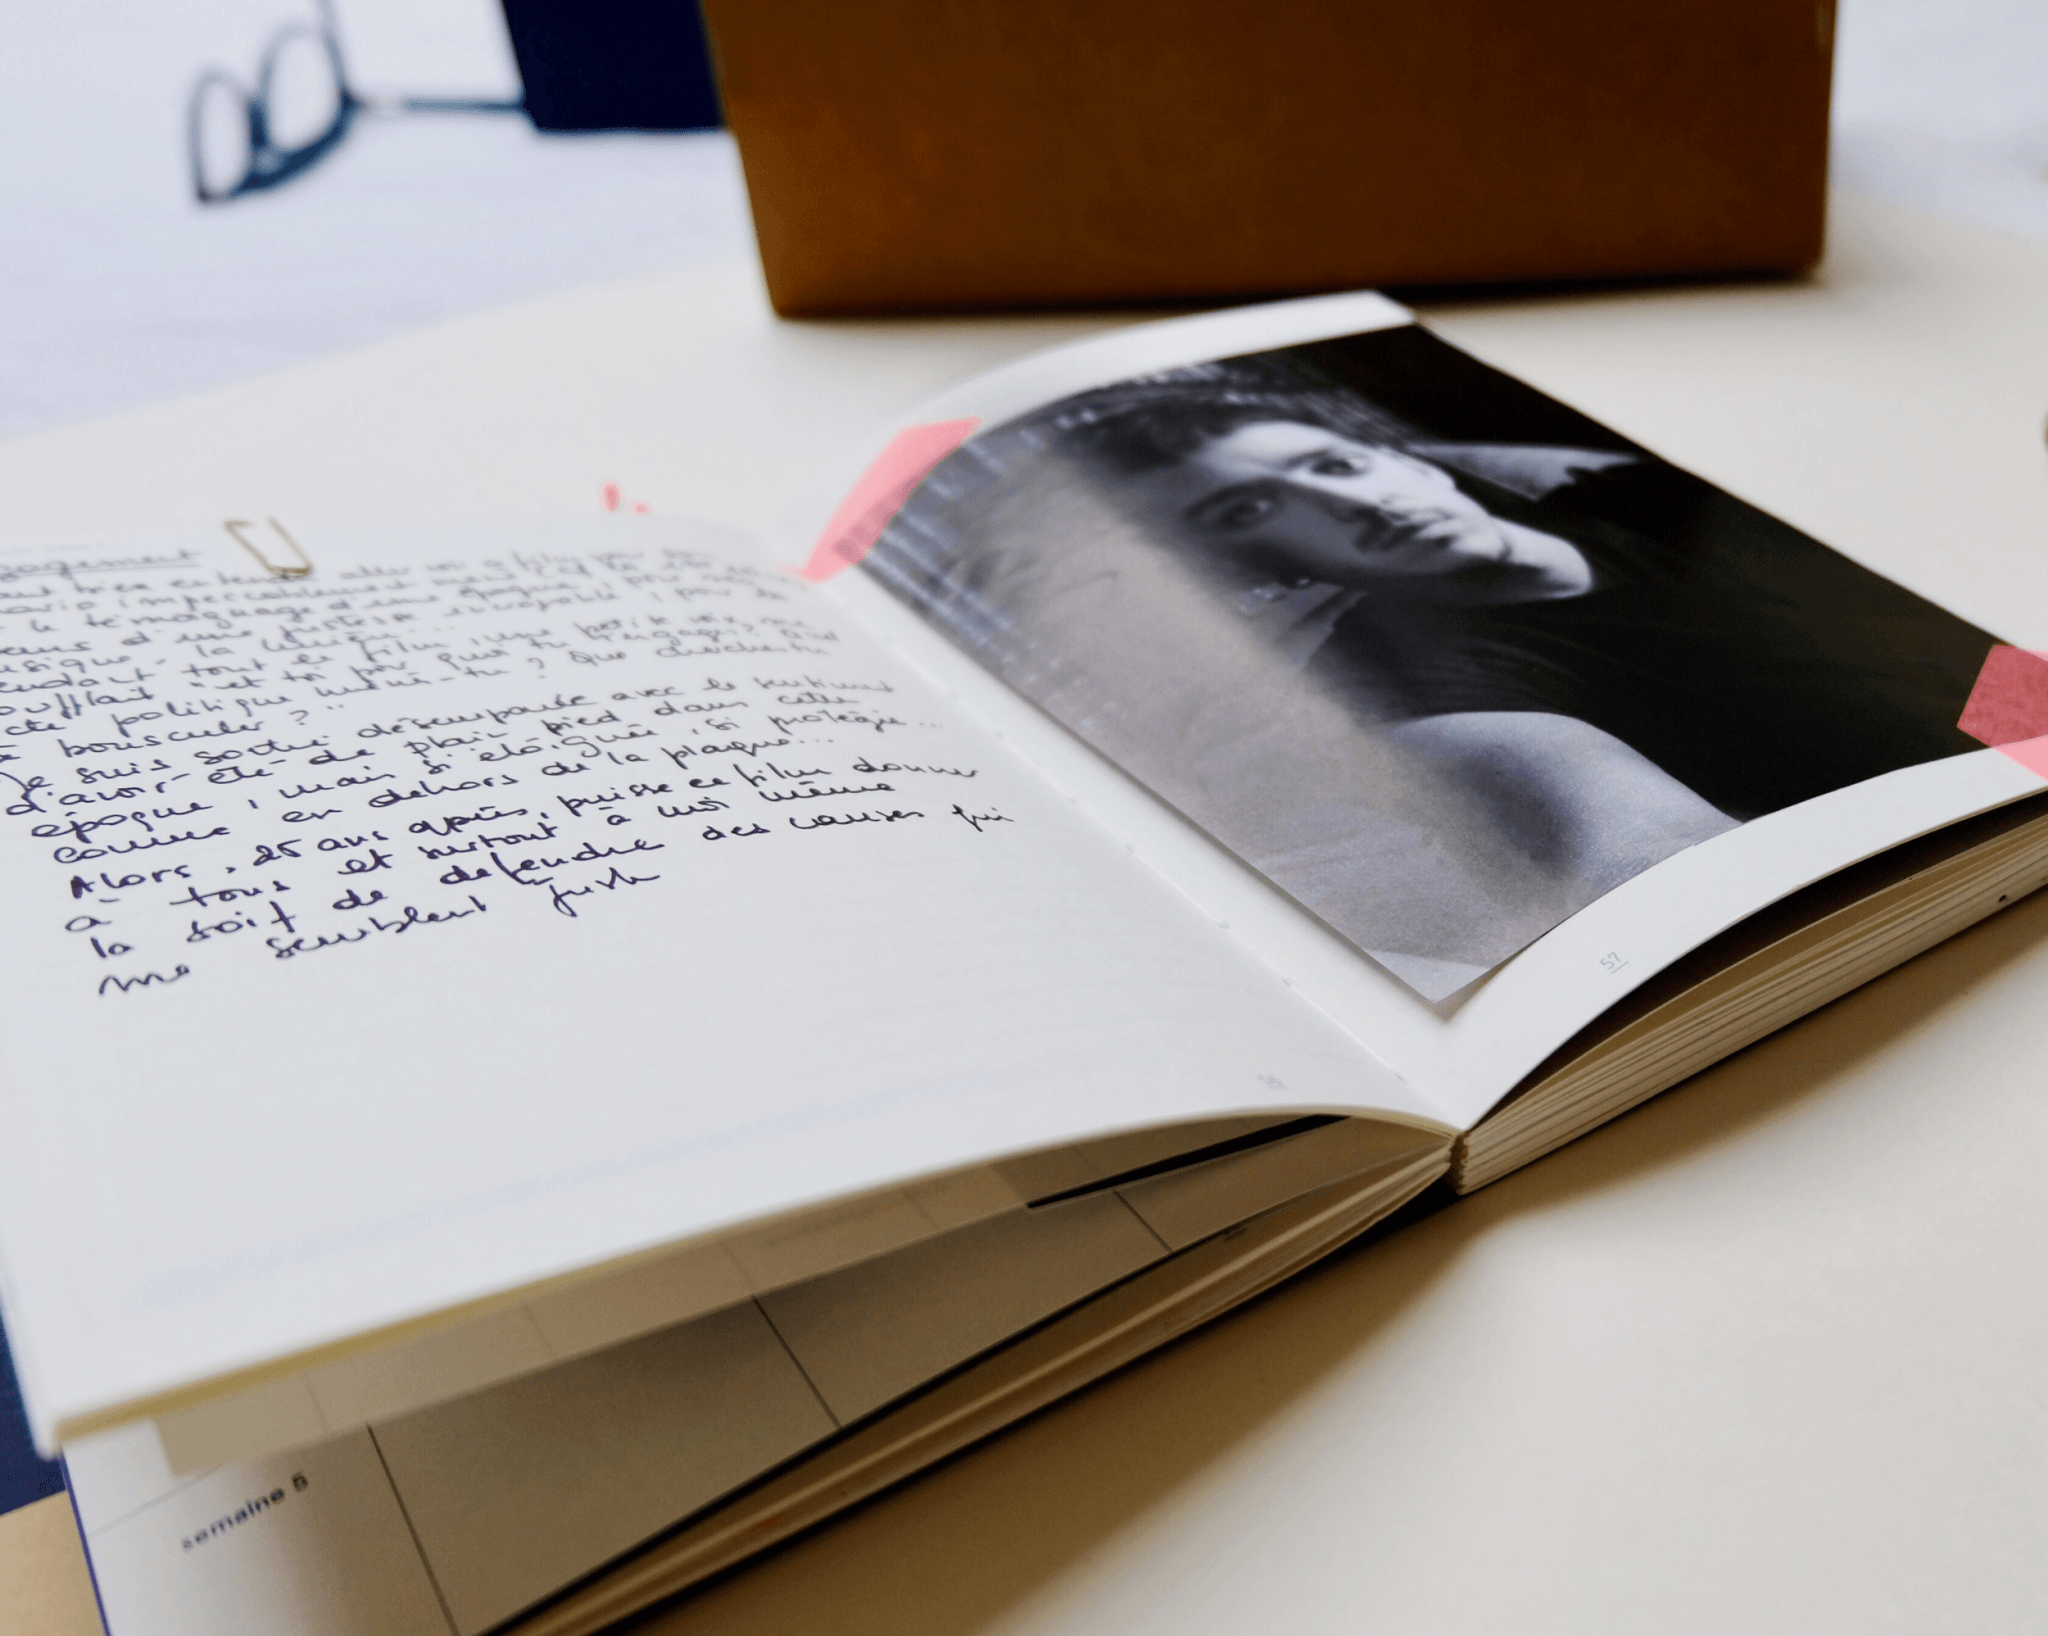 ngagement
bien entendu aller voir ce film pour son
nario impeccablement mené
le témoignage d'une époque, pour ses
d'une justesse incroyable, pour la
usique - la lumière...
endant tout le film, une petite voix me
oufflait "et toi pour quoi tu t'engages? Quel
cte politique mènes-tu? Que cherches-tu
à bousculer?"
Je suis sortie désemparée avec le sentiment
d'avoir été de plain pied dans cette
époque, mais si éloignée, si protégée...
comme en dehors de la plaque...
Alors, 25 ans après, puisse ce film donner
à tous et surtout à moi même
la soif de défendre des causes qui
me semblent juste
57
56
semaine 5